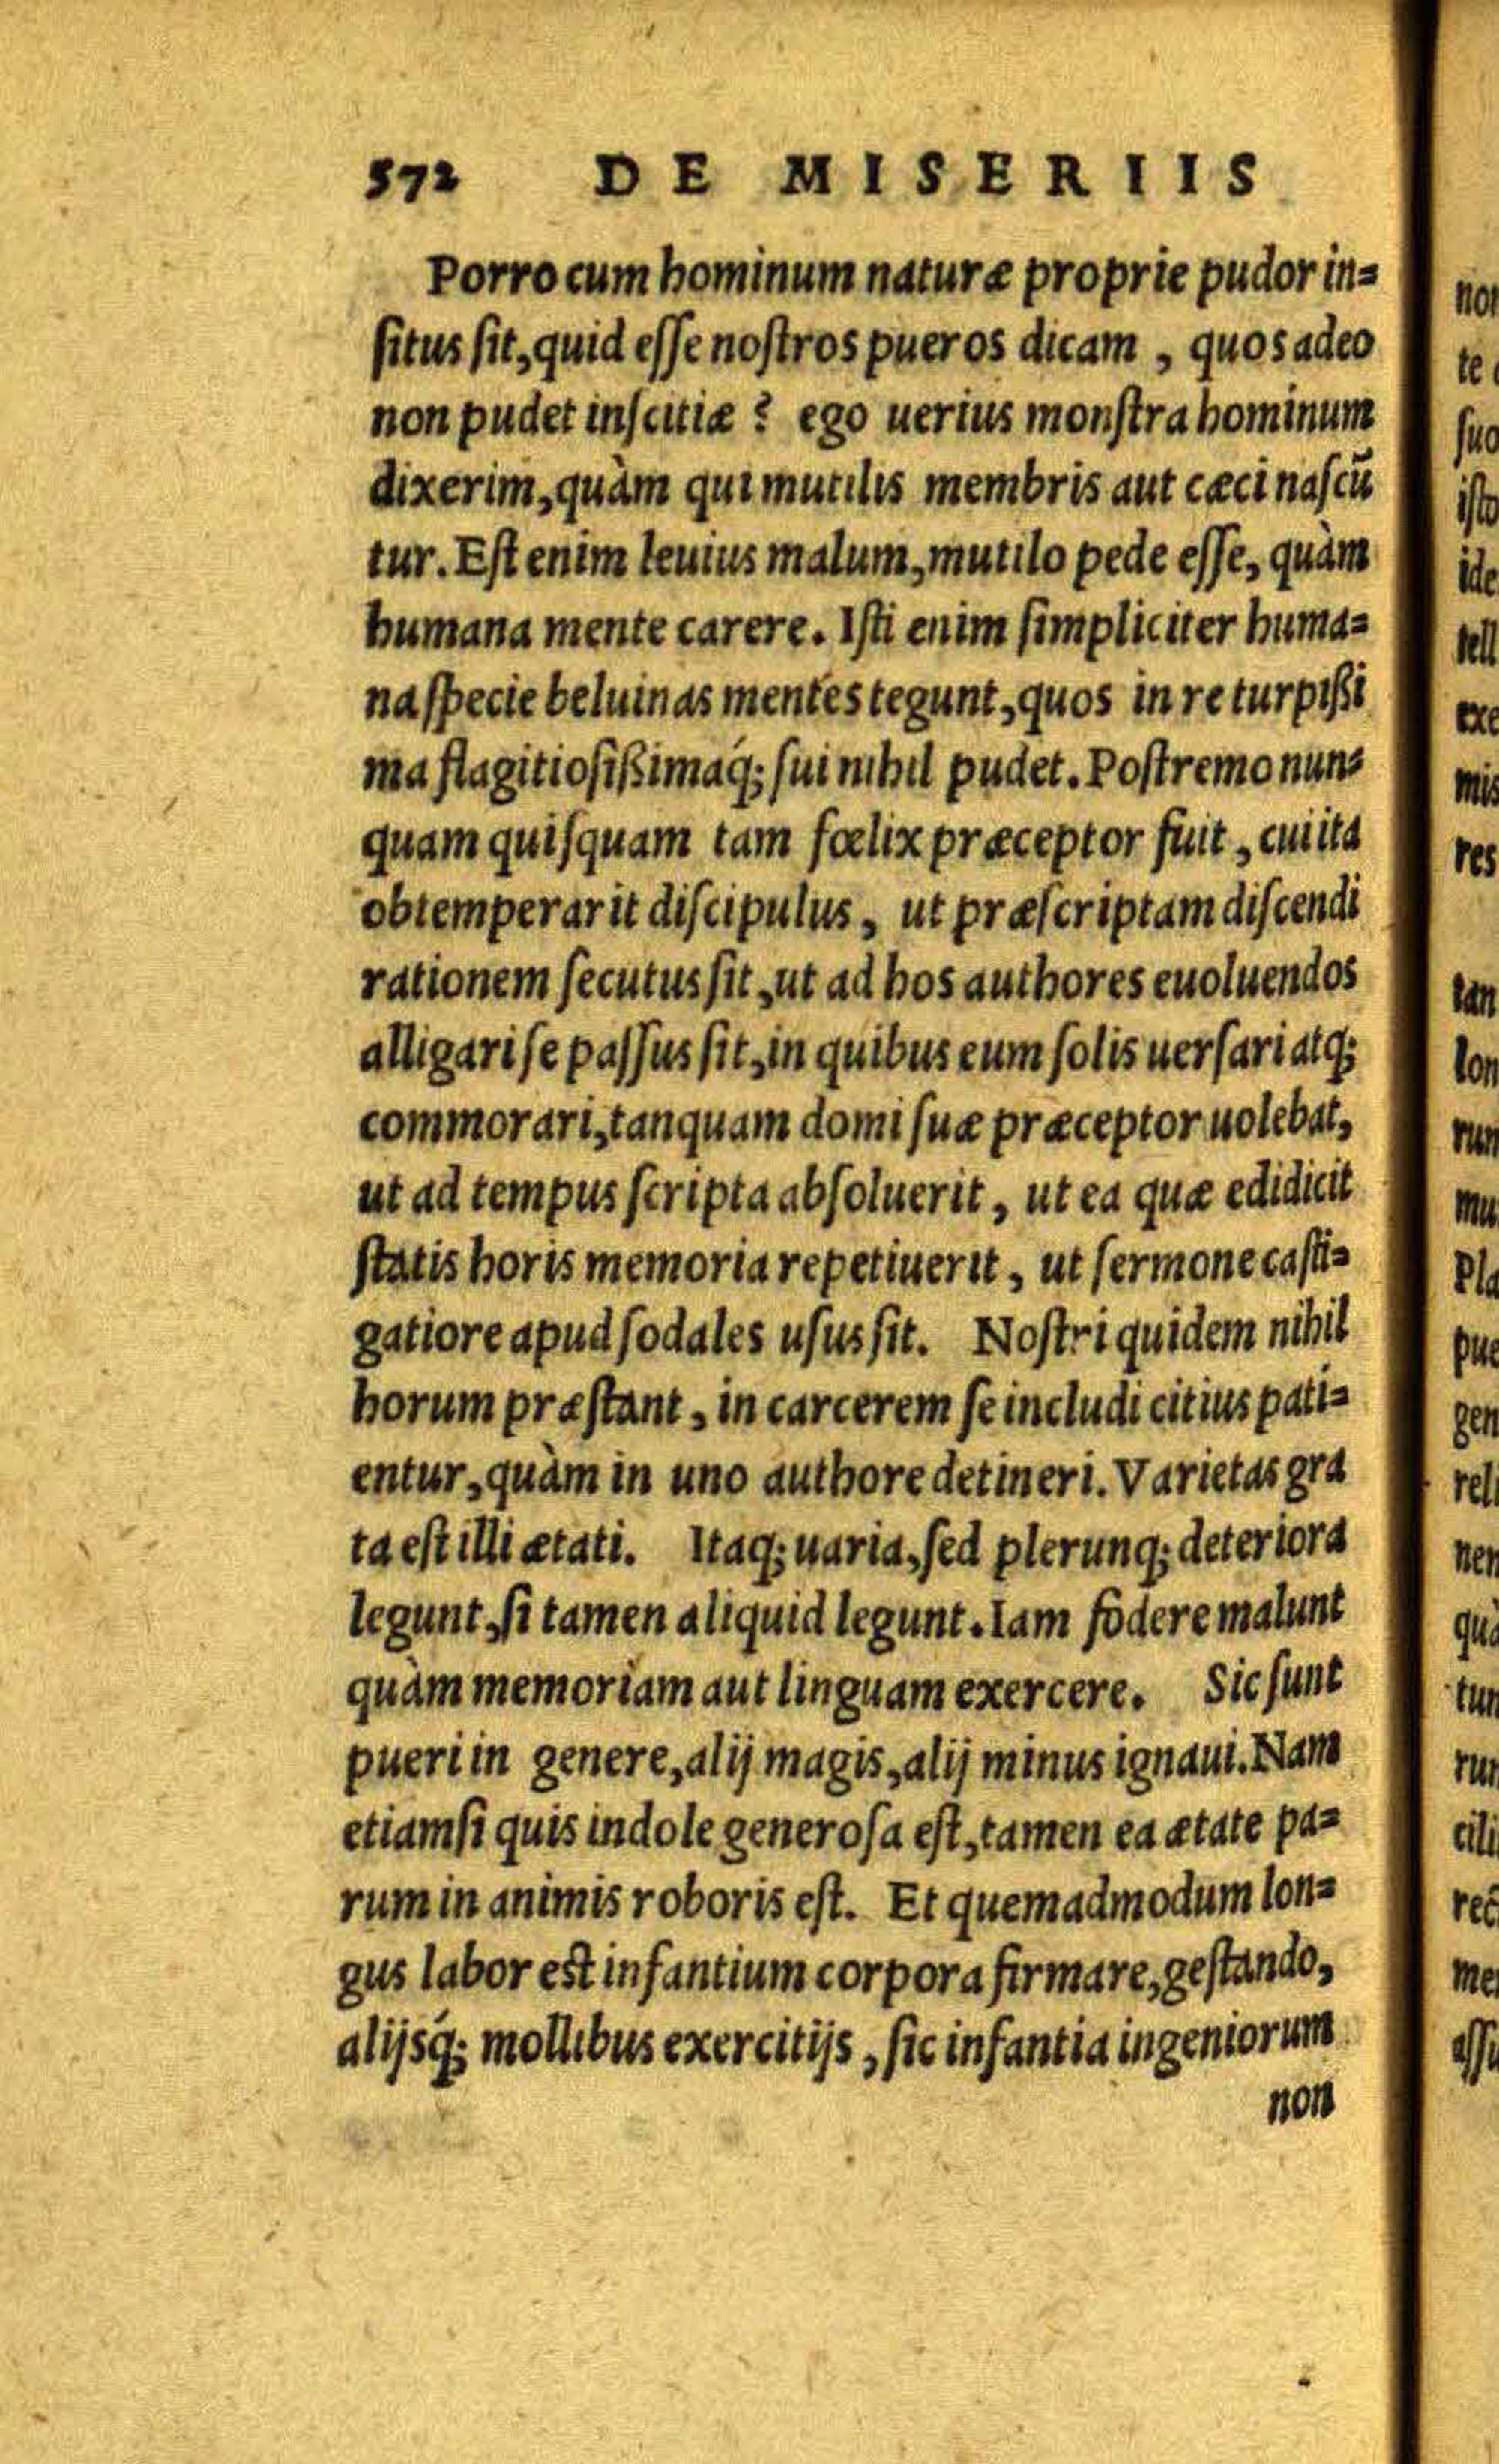 572 DE MISERIIS
Porro cum hominum naturæ proprie pudor in=
ſitus ſit, quid eſſe noſtros pueros dicam, quos adeo
non pudet inſcitiæ? ego uerius monſtra hominum
dixerim, quàm qui mutilis membris aut cæci naſcū
tur. Eſt enim leuius malum, mutilo pede eſſe, quàm
humana mente carere. Iſti enim ſimpliciter huma=
na ſpecie beluinas mentes tegunt, quos in re turpißi
ma flagitioſißimaq́; ſui nihil pudet. Poſtremo nun=
quam quiſquam tam fœlix præceptor fuit, cui ita
obtemperarit diſcipulus, ut præſcriptam diſcendi
rationem ſecutus ſit, ut ad hos authores euoluendos
alligari ſe paſſus ſit, in quibus eum ſolis uerſari atq;
commorari, tanquam domi ſuæ præceptor uolebat,
ut ad tempus ſcripta abſoluerit, ut ea quæ edidicit
ſtatis horis memoria repetiuerit, ut ſermone caſti=
gatiore apud ſodales uſus ſit. Noſtri quidem nihil
horum præſtant, in carcerem ſe includi citius pati=
entur, quàm in uno authore detineri. Varietas gra
ta eſt illi ætati. Itaq; uaria, ſed plerunq; deteriora
legunt, ſi tamen aliquid legunt. Iam fodere malunt
quàm memoriam aut linguam exercere. Sic ſunt
pueri in genere, alij magis, alij minus ignaui. Nam
etiamſi quis indole generoſa eſt, tamen ea ætate pa=
rum in animis roboris eſt. Et quemadmodum lon=
gus labor eſt infantium corpora firmare, geſtando,
alijsq́; mollibus exercitijs, ſic infantia ingeniorum
non